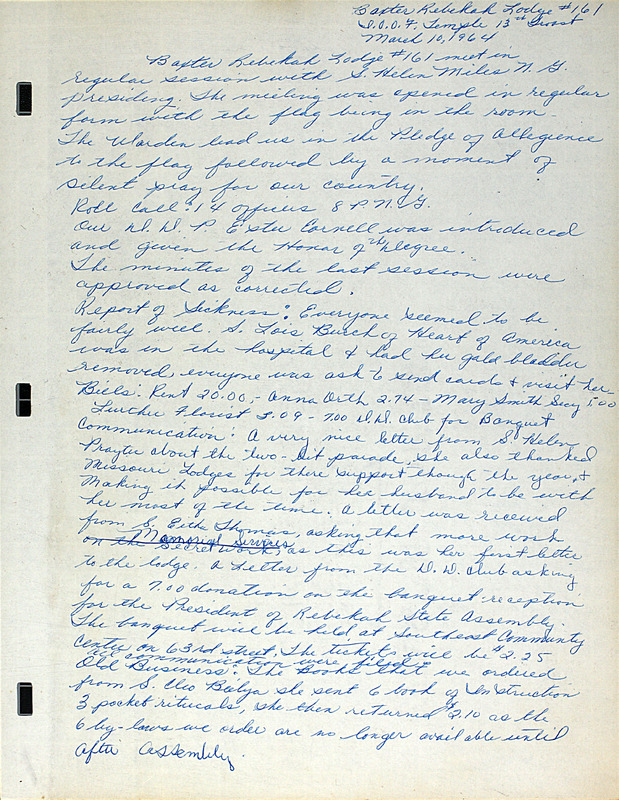 Baxter Rebekah Lodge #161
I.O.O.F. Temple 13th Troost
March 10, 1964
Baxter Rebekah Lodge #161 meet in
regular session with S. Helen Miles N. G.
presiding. The meeting was opened in regular
form with the flag being in the room.
The Warden lead us in the Pledge of Allegience
to the flag followed by a moment of
silent pray for our country.
Roll Call: 14 officers 8 P.N.G.
Our D. D. P. Ester Cornell was introduced
and given the Honor of the Degree.
The minutes of the last session were
approved as corrected.
Report of Sickness: Everyone seemed to be
fairly well. S. Lois Burch of Heart of America
was in the hospital & had her gald bladder
removed everyone was ask to send cards & visit her
Biels: Rent 20.00, - Anna Orth 2.74 - Mary Smith Secy 5.00
Florist 3.09 - 7.00 D.D. Club for Banquet
Communication: A very nice letter from S. Helen
Prayter about the two-bit parade, she also thanked
Missouri Lodges for there support though the year, &
Making it possible for her husband to be with
her most of the time. A letter was received
from S. Thomas, asking that more work
on the Memorial Services
secret work, as this was her first letter
to the lodge. A letter from the D. D. Club asking
for a 7.00 donation on the banquet-reception
for the President of Rebekah State Assembly.
The banquet will be held at Southeast Community
Center on 63rd street. The tickets will be $2.25
All communication were filed.
Old Business: The books that we ordered
from S. Cleo she sent 6 book of Instruation
3 pocket rituals, she then returned $2.10 as the
6 by-laws we order are no longer available until
after assembly.